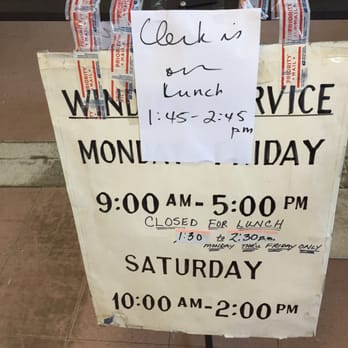 Clerk is
on
Lunch
1:45-2:45
pm
WIND SERVICE
MONDAY FRIDAY
9:00 AM - 5:00 PM
CLOSED FOR LUNCH
1:30 to 2:30 P.M.
MONDAY THRU FRIDAY ONLY
SATURDAY
10:00 AM - 2:00 PM